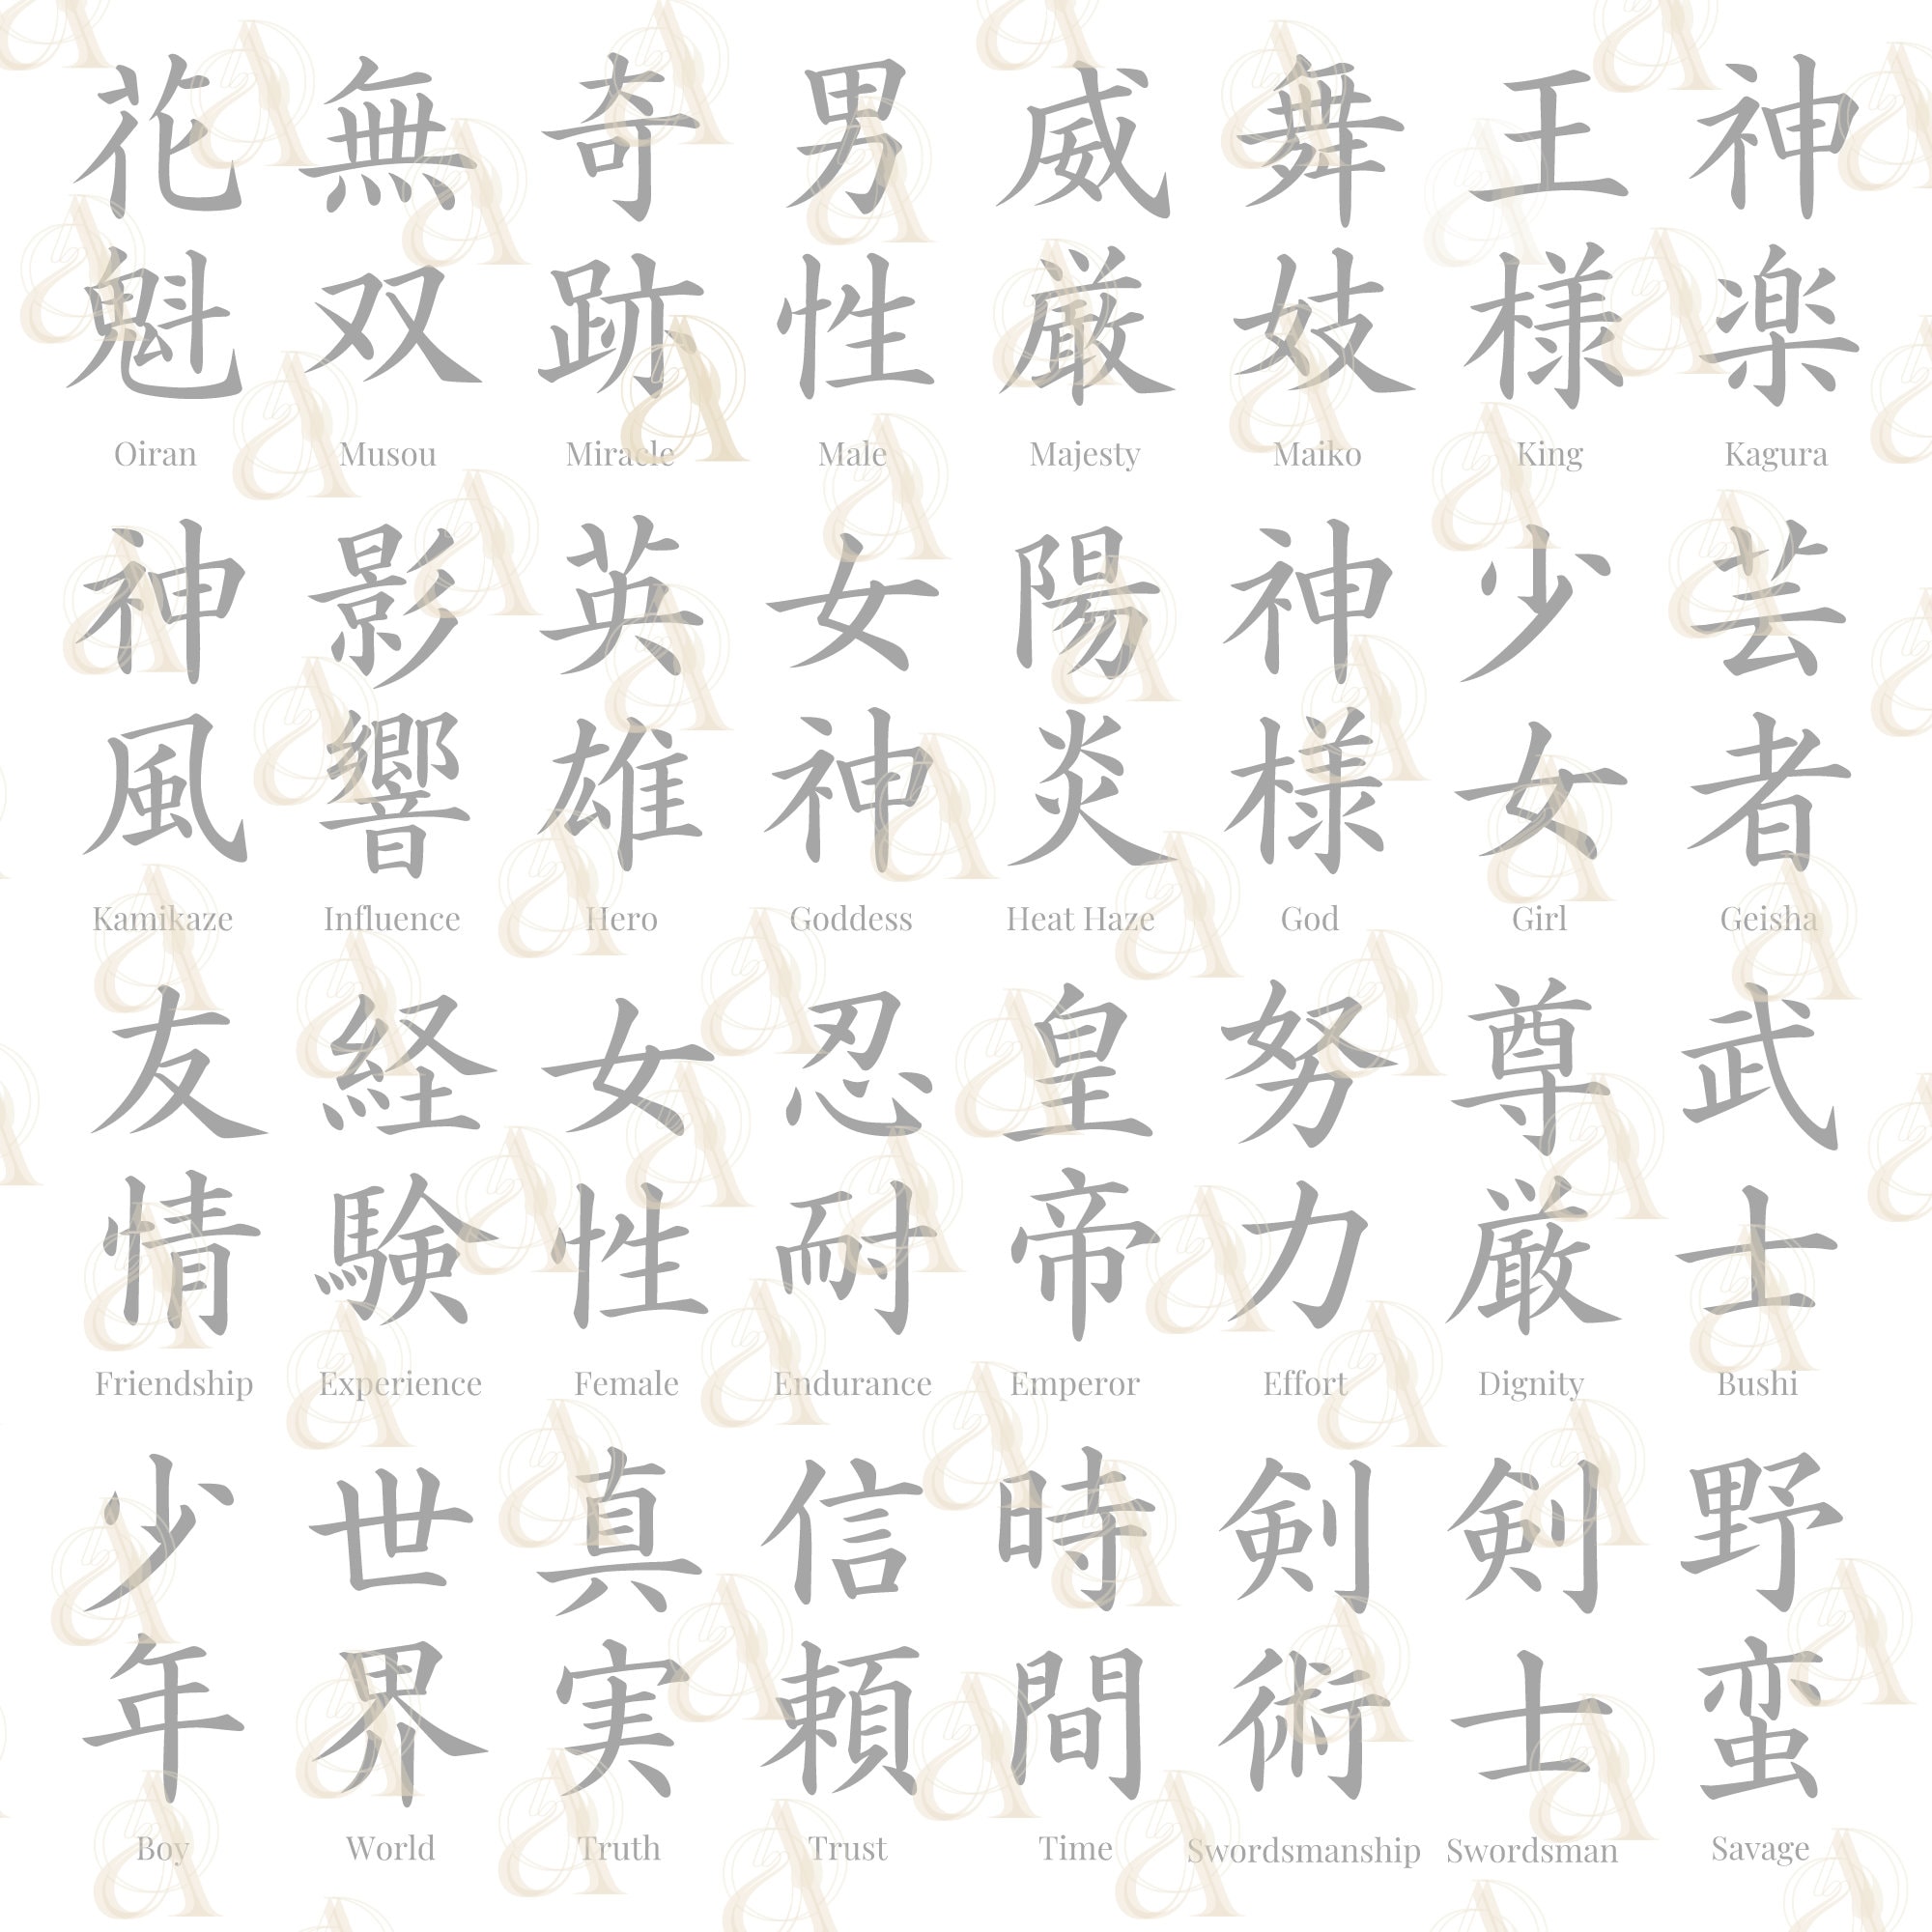 花 無 奇 男 威 舞 王 神
魁 双 跡 性 厳 妓 様 楽
Oiran Musou Miracle Male Majesty Maiko King Kagura
神 影 英 女 陽 神 少 芸
風 響 雄 神 炎 様 女 者
Kamikaze Influence Hero Goddess Heat Haze God Girl Geisha
友 経 女 忍 皇 努 尊 武
情 験 性 耐 帝 力 厳 士
Friendship Experience Female Endurance Emperor Effort Dignity Bushi
少 世 真 信 時 剣 剣 野
年 界 実 頼 間 術 士 蛮
Boy World Truth Trust Time Swordsmanship Swordsman Savage